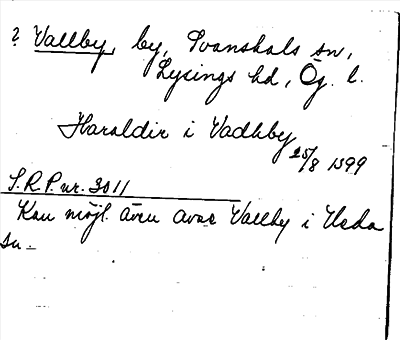 ? Vallby, by, Svanshals sn,
Lysings hd, Ög. l.
Haraldir i Vadhby
25/8 1399
S.R.P. nr. 3011
Kan möjl. även avse Vallby i Usda
sn.